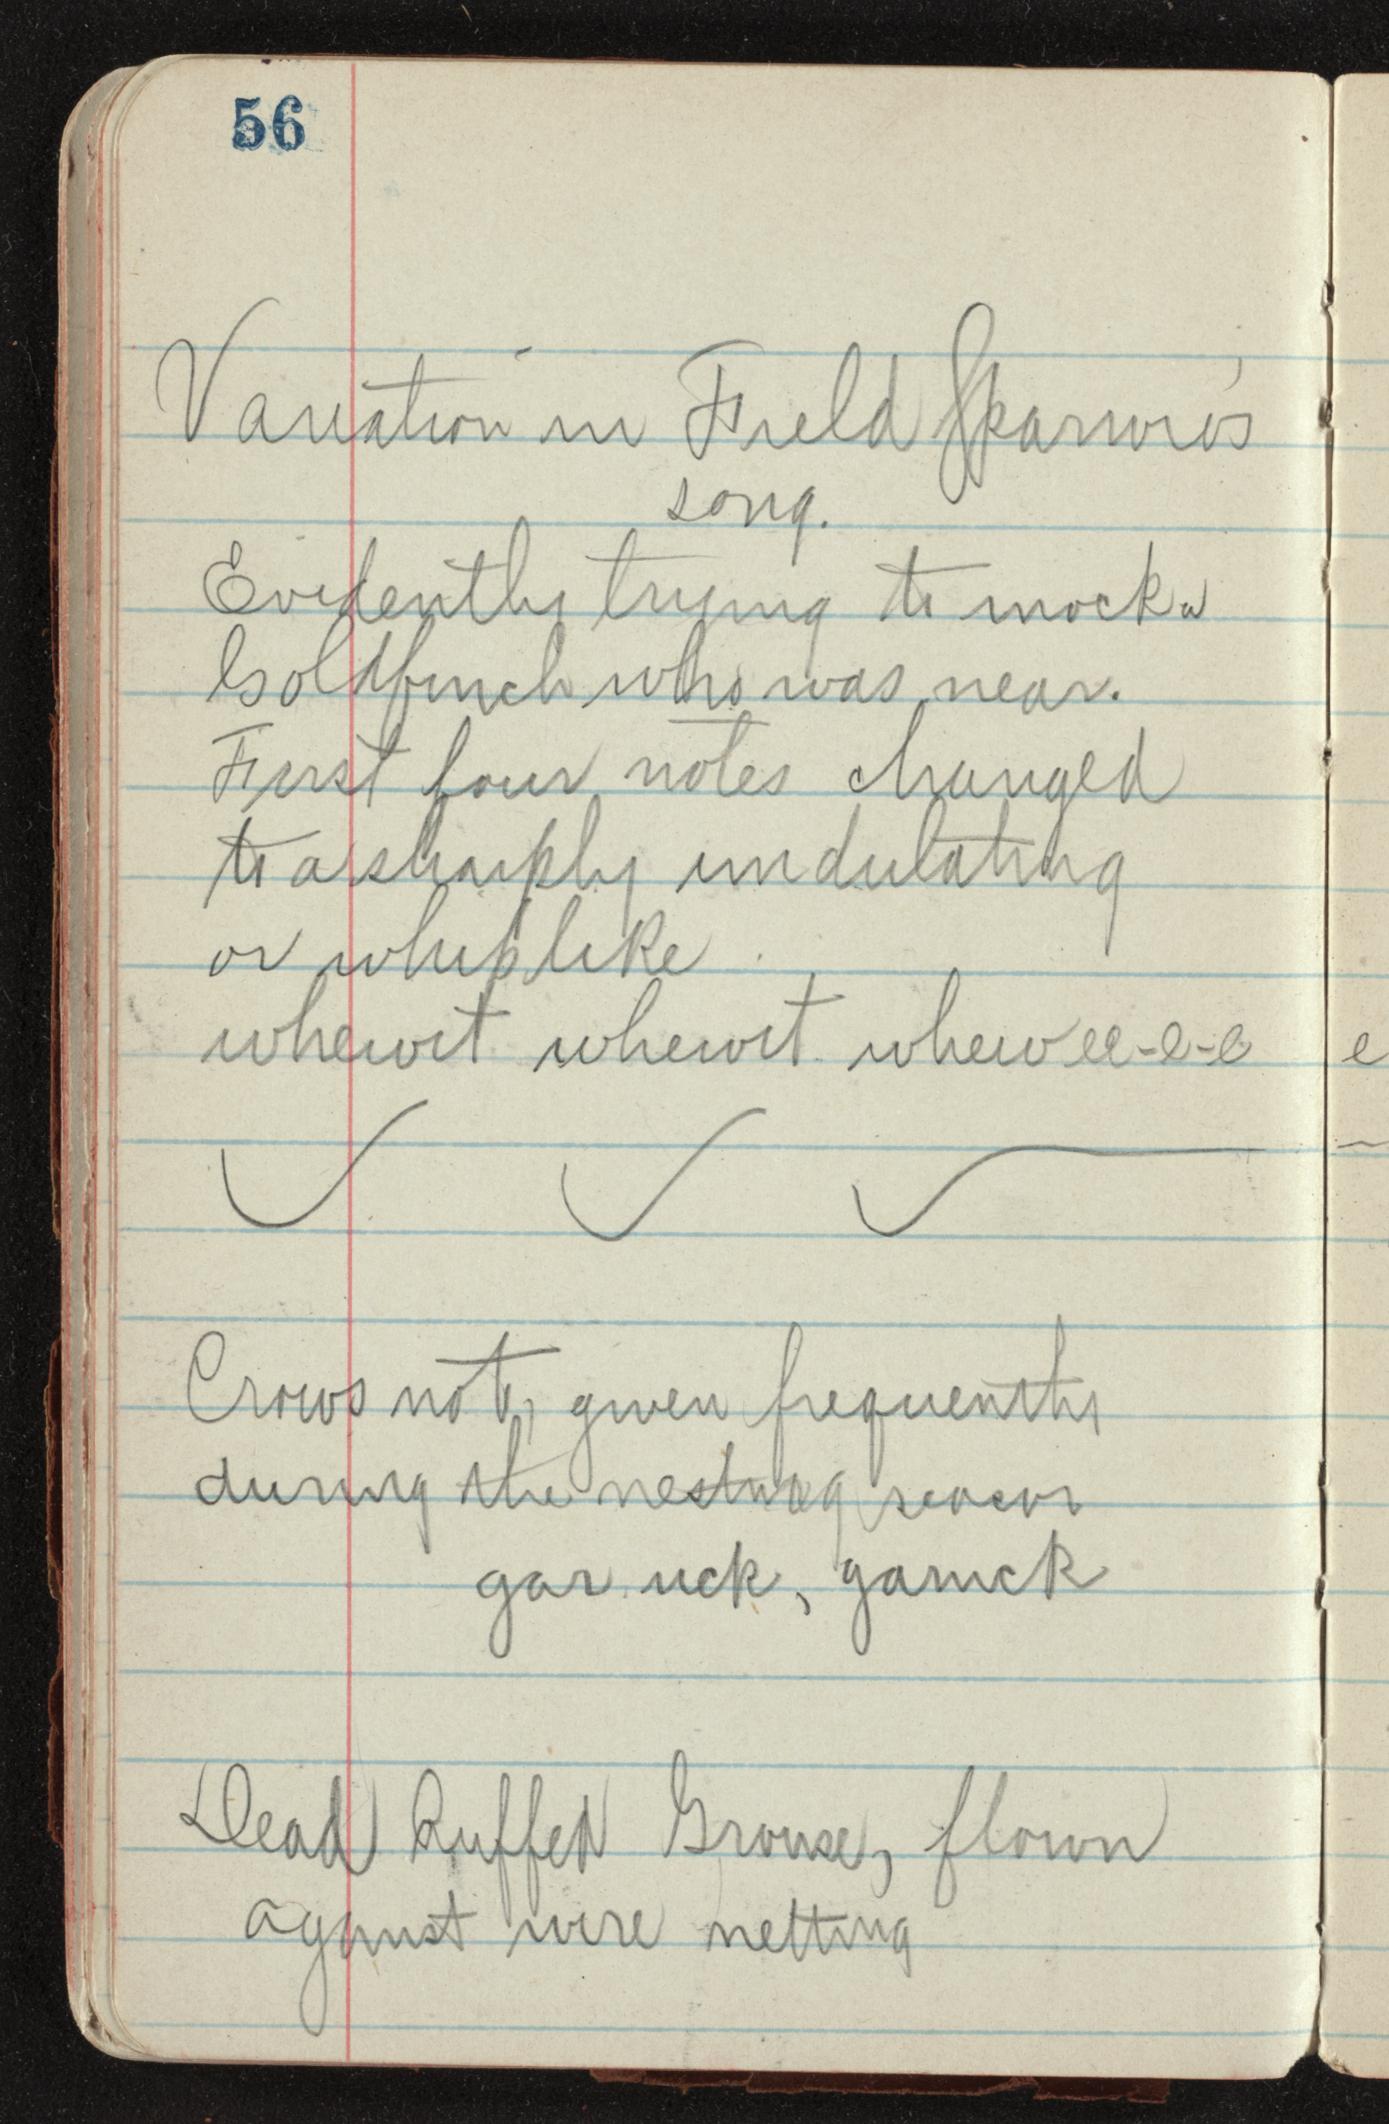 56
Variation in Field Sparrow's
song.
Evidently trying to mock a
Goldfinch who was near.
First four notes changed
to a sharply undulating
or whiplike
whewit whewit whewee-e-e e
Crows note, given frequently
during the nesting season
gar uck, garuck
Dead Ruffed Grouse, flown
against wire netting